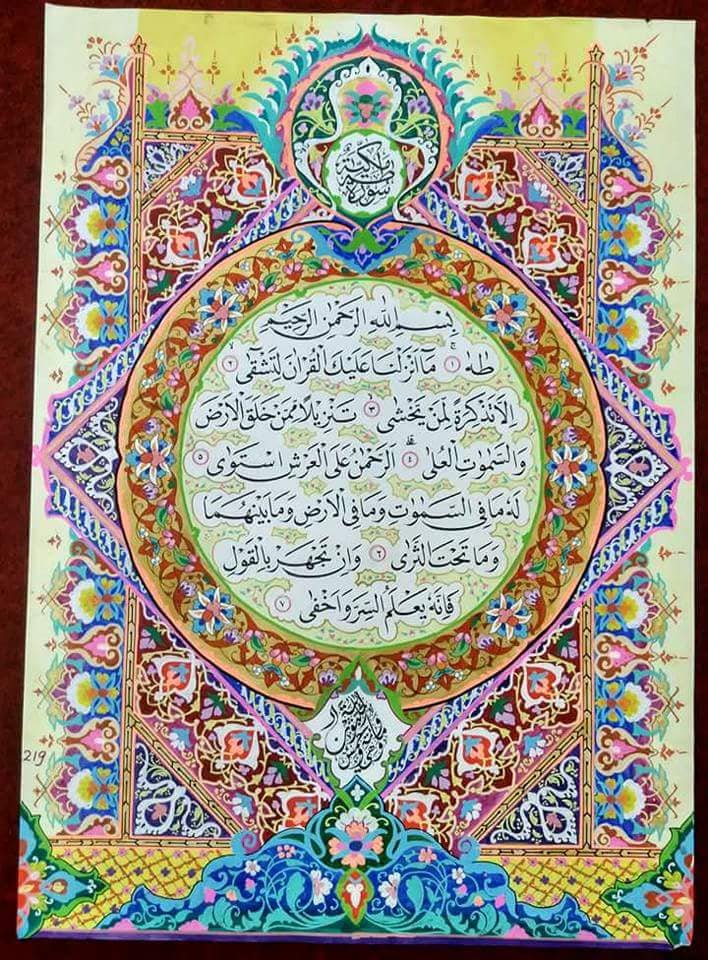 سُورَةُ طٰهٰ مَكِّيَّة
بِسْمِ اللهِ الرَّحْمٰنِ الرَّحِيْمِ
طٰهٰ ١ مَا اَنْزَلْنَا عَلَيْكَ الْقُرْاٰنَ لِتَشْقٰى ٢
اِلَّا تَذْكِرَةً لِّمَنْ يَّخْشٰى ٣ تَنْزِيْلًا مِّمَّنْ خَلَقَ الْاَرْضَ
وَالسَّمٰوٰتِ الْعُلٰى ٤ اَلرَّحْمٰنُ عَلَى الْعَرْشِ اسْتَوٰى ٥
لَهٗ مَا فِى السَّمٰوٰتِ وَمَا فِى الْاَرْضِ وَمَا بَيْنَهُمَا
وَمَا تَحْتَ الثَّرٰى ٦ وَاِنْ تَجْهَرْ بِالْقَوْلِ
فَاِنَّهٗ يَعْلَمُ السِّرَّ وَاَخْفٰى ٧
219